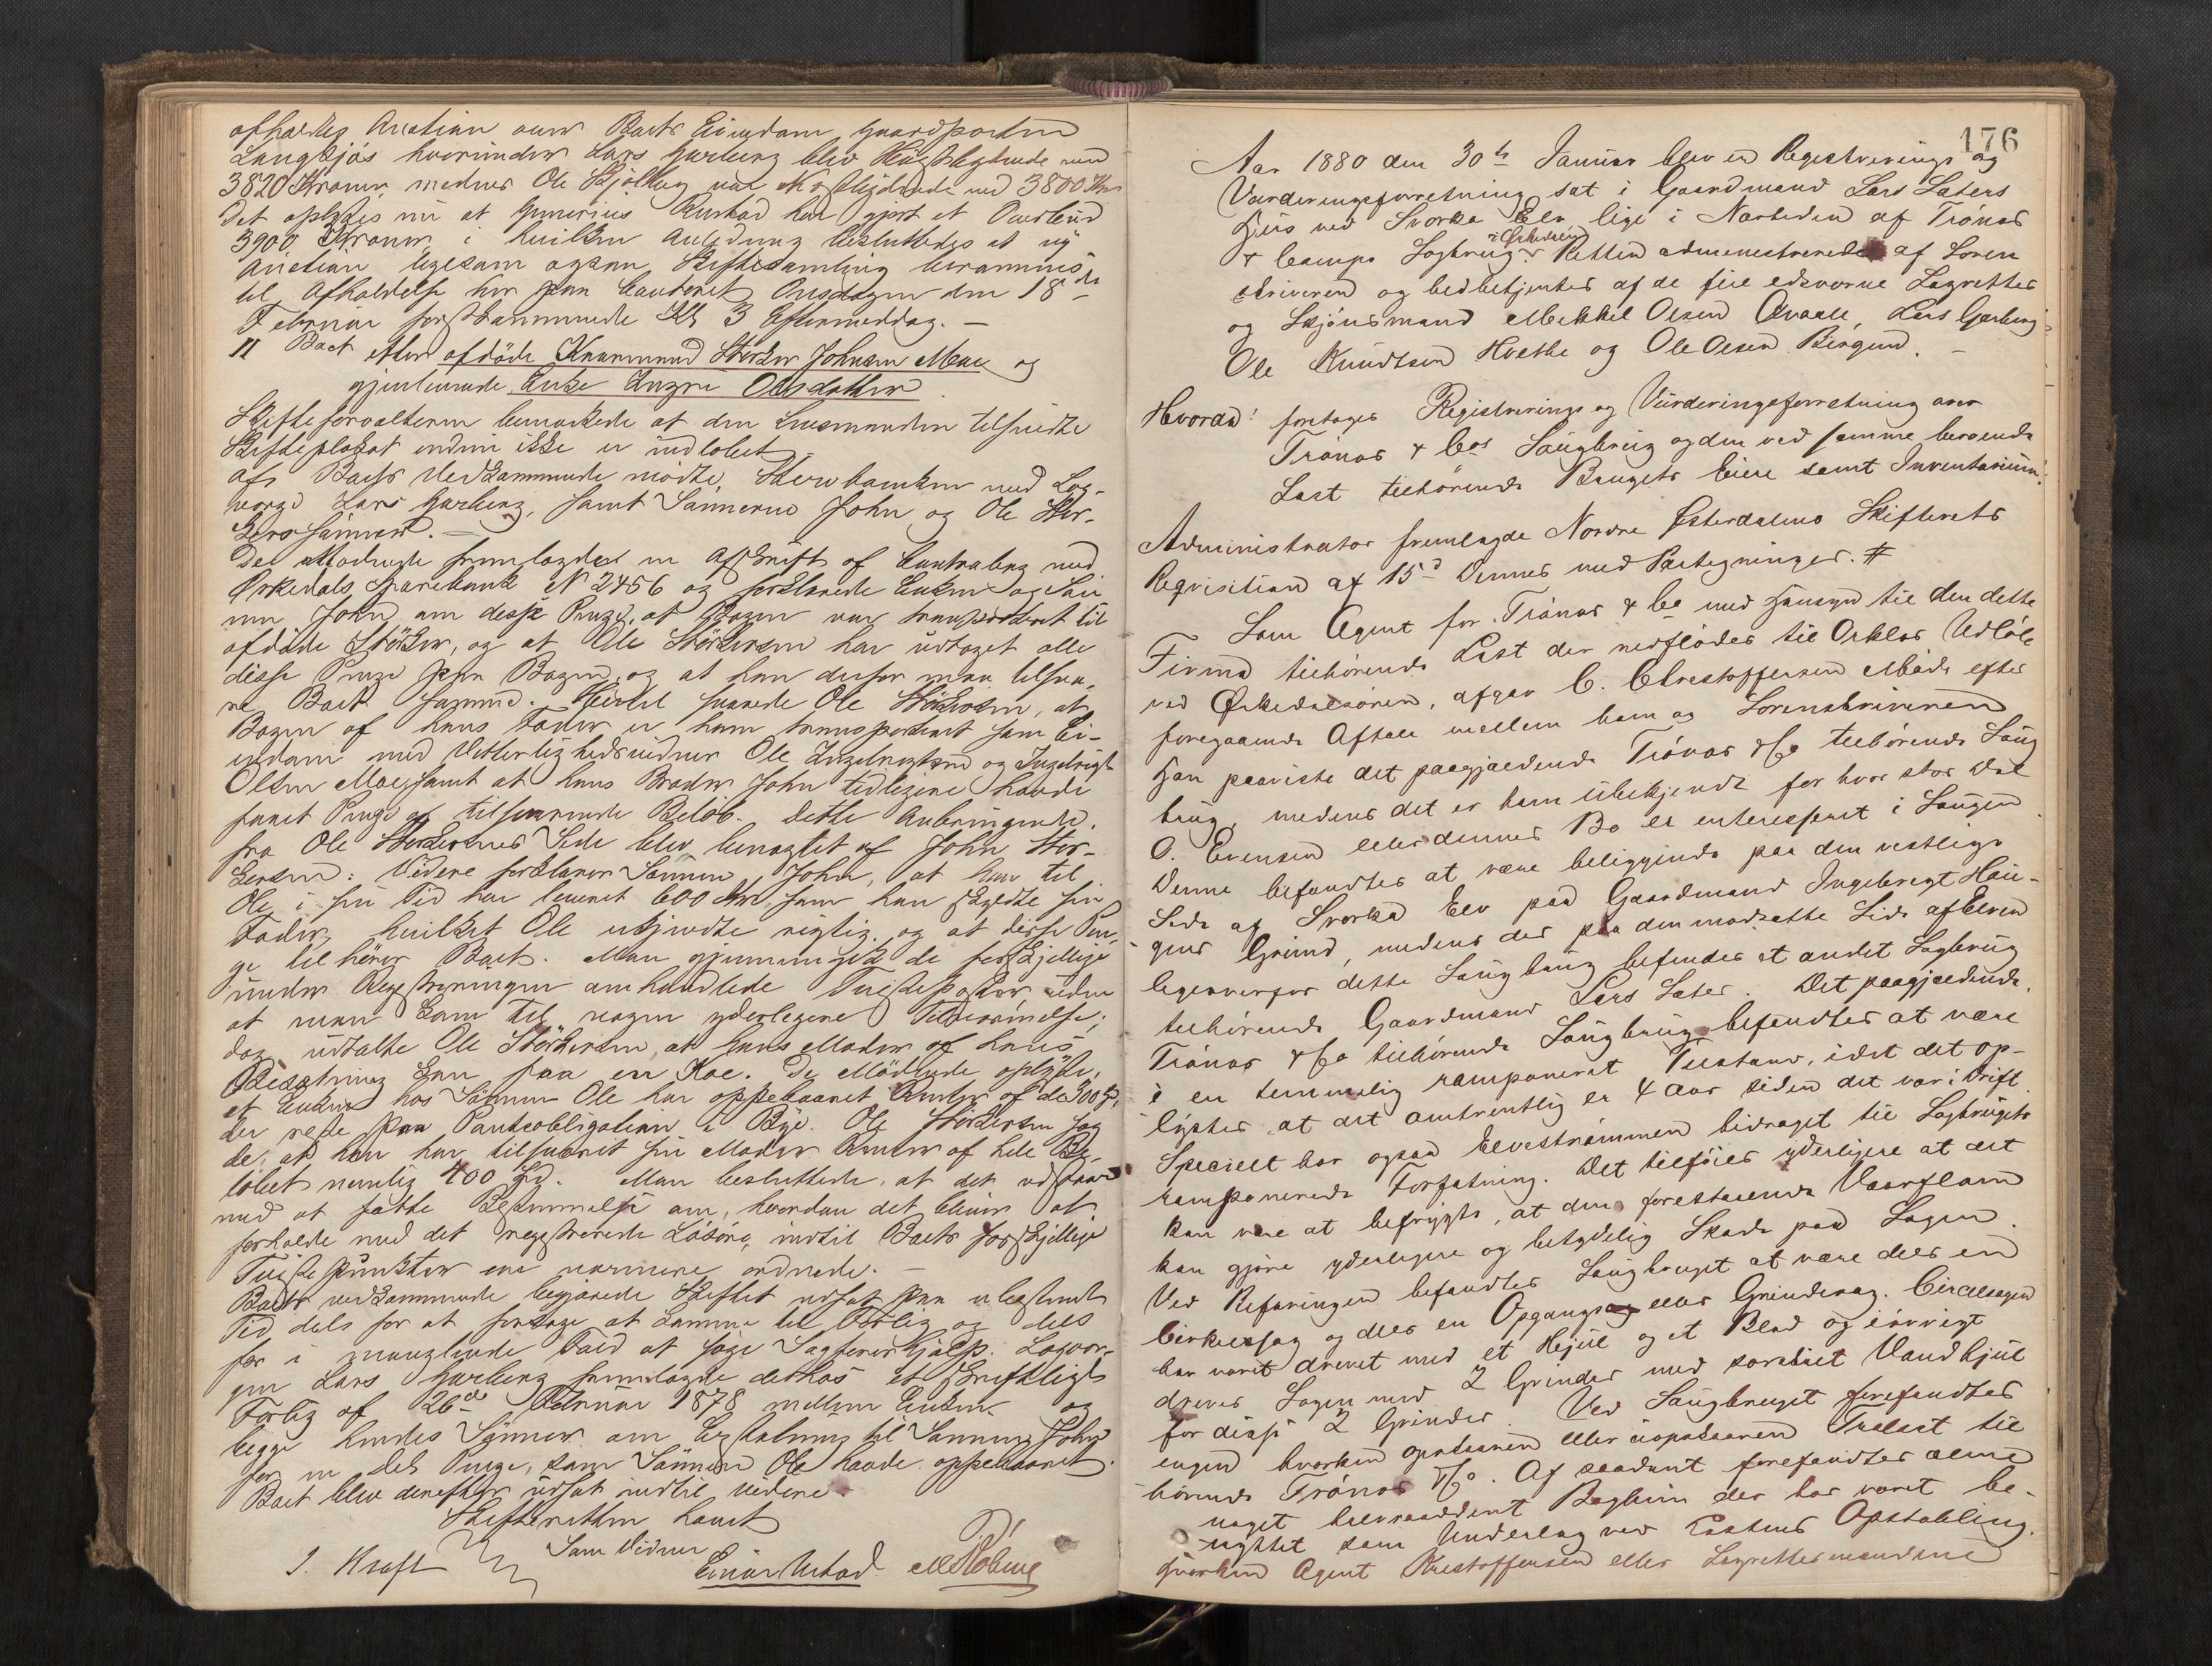 afholdtes Auction over Boets Eiendom Gaardparten
Langkjøs hvorunder Lars Garberg blev Høistbydende med
3820 Kroner, medens Ole Skjølberg var Næstbydende med 3800 Kr.
Det oplystes nu at Gunerius Rustad har gjort et Overbud
3900 Kroner, i hvilken Anledning besluttedes at ny
Auction ligesom ogsaa Skiftesamling berammes
til Afholdelse her paa Contoret Onsdagen den 18de
Februar førstkommende Kl 3 Eftermiddag. –
11 Boet efter afdøde Kaarmand Størker Johnsen Moe og
gjenlevende Enke Ingri Olsdatter.
Skifteforvalteren bemærkede at den Lensmanden tilsendte
Skifteplakat endnu ikke er indløbet.
Af Boets Vedkommende mødte Sterboenken med Lag-
værge Lars Garberg, samt Sønnerne John og Ole Stør-
kersønner. –
De Mødende fremlagde en Afskrift af Contrabog med
Orkedals Sparebank N 2456 og forklarede Enken og Søn-
nen John om disse Penge, at Bogen var transporteret til
afdøde Størker, og at Ole Størkersen har udtaget alle
disse Penge paa Bogen, og at han derfor maa tilsva-
re Boet samme. Hertil svarede Ole Størkersen, at
Bogen af hans Fader er ham transporteret som Ei-
endom med Vitterlighedsvidner Ole Ingebrigtsen og Ingebrigt
Olsen Moe, samt at hans Broder John tidligere havde
faaet Penge af tilsvarende Beløb. Dette Anbringende
fra Ole Størkersens Side blev benægtet af John Stør-
kersen. Videre forklarer Sønnen John, at han til
Ole i sin Tid har leveret 600 Kr, som han skyldte sin
Fader, hvilket Ole erkjendte rigtig, og at disse Pen-
ge tilhører Boet. Man gjennemgik de forskjellige
under Registreringen omhandlede Tvistepunkter, uden
at man kom til nogen yderligere Tilnærmelse;
dog udtalte Ole Størkersen, at hans Moder af hans
Besætning kan faa en Koe. De Mødende oplyste,
at Enken hos Sønnen Ole har oppebaaret Renter af de 300 Spd,
der rede paa Pantobligation i Bye. Ole Størkersen sag-
de, at han har tilsvaret sin Moder Renter af hele Be-
løbet nemlig 400 Spd. Man besluttede, at det udstaar
med at fatte Bestemmelse om, hvordan det bliver at
forholde med det registrerede Løsøre, indtil Boets forskjellige
Tvistepunkter ere nærmere ordnede. –
Boets vedkommende begjærede Skiftet udsat paa ubestemt
Tid dels for at forsøge at komme til Forlig og dels
for i manglende Fald at søge Sagførerhjælp. Lagvær-
gen Lars Garberg fremlagde derhos et skriftligt
Forlig af 26de Februar 1878 mellem Enken og
begge hendes Sønner om Erstatning til Sønnen John
for en Del Penge, som Sønnen Ole havde oppebaaret.
Boet blev derefter udsat indtil videre.
Skifteretten hævet
J. Kraft
Som Vidner
Einar Ustad

176
Aar 1880 den 30te Januar blev en Registrerings og
Vurderingsforretning sat i Gaardmand Lars Saters
Huus ved Svorka Elv lige i Nærheden af Trønæs
& Comps Sagbrug i Orkedalen. Retten administreredes af Soren
skriveren og bed betjentes af de fire edsvorne Lagrettes
og Skjønsmænd Mikkel Olsen Qvaale, Lars Garberg,
Ole Knudtsen Hvethe og Ole Olsen Bergem. –
Hvorda! foretages Registrerings og Vurderingsforretning over
Trønæs & Cos Saugbrug og den ved samme beroende
Last tilhørende Brugets Eiere samt Inventarium.
Administrator fremlagde Nordre Østerdalens Skifterets
Reqvisition af 15d dennes med Paategninger. #
Som Agent for Trønæs & Co med Hensyn til den dette
Firma tilhørende Last der nedflødes til Orklas Udløb
ved Orkedalsøren, afgav C. Christoffersen Møde efter
foregaaende Aftale mellem ham og Sorenskriveren
Han paaviste det paagjældende Trønæs & Co tilhørende Saug
brug, medens det er ham ubekjendt for hvor stor Del
O. Evensen eller dennes Bo er interesseret i Saugen
Denne befandtes at være beliggende paa den vestlige
Side af Svorka Elv paa Gaardmand Ingebrigt Hau-
gens Grund, medens der paa den modsatte Side af Elven
ligeoverfor dette Saugbrug befindes et andet Sagbrug
tilhørende Gaardmand Lars Sater. Det paagjældende
Trønæs & Co tilhørende Saugbrug befandtes at være
i en temmelig ramponeret Tilstand, idet det op-
lystes, at det omtrentlig er 4 Aar siden det var i Drift.
Specielt har ogsaa Elvestrømmen bidraget til Sagbrugets
ramponerede Forfatning. Det tilføies yderligere at det
kan være at befrygte, at den forestaaende Vaarflom
kan gjøre yderligere og betydelig Skade paa Sagen.
Ved Befaringen befandtes Saugbruget at være dels en
Cirkelsag og dels en Opgangsag eller Grindesag. Cirkelsagen
har været drevet med et Hjul og et Blad og iøvrigt
drives Sagen med 2 Grinder med særskilt Vandhjul
for disse 2 Grinder. Ved Saugbruget forefandtes
ingen hverken opskaaren eller uopskaaren Trælast til
hørende Trønæs & Co. Af saadant forefandtes alene
noget halvraaddent Baghun der har været be-
nyttet som Underlag ved Lastens Opstabling.
Hverken Agent Kristoffersen eller Lagrettesmændene